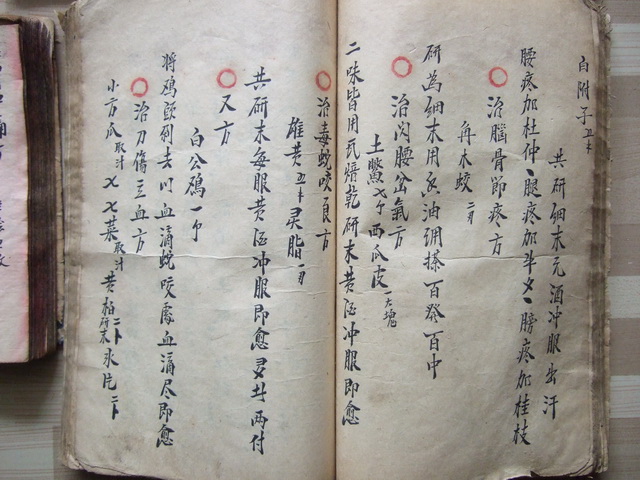 白附子五卜
共研細末元酒冲服出汗
腰疼加杜仲腿疼加牛夕膀疼加桂枝
治腦骨節疼方
舟木蛟二刃
研為細末用香油調搽百發百中
治闪腰岔氣方
土鱉七个西瓜皮一大塊
二味皆用瓦焙乾研末黄酒冲服即愈
治毒蛇咬良方
雄黄五卜灵脂一刃
共研末每服黄酒冲服即愈 分 两付
又方
白公鴉一个
將鴉頭剁去以血滴蛇咬處血滴尽即愈
治刀傷豆血方
小方瓜取汁 七葉取汁 黄柏二卜研末 氷片二卜